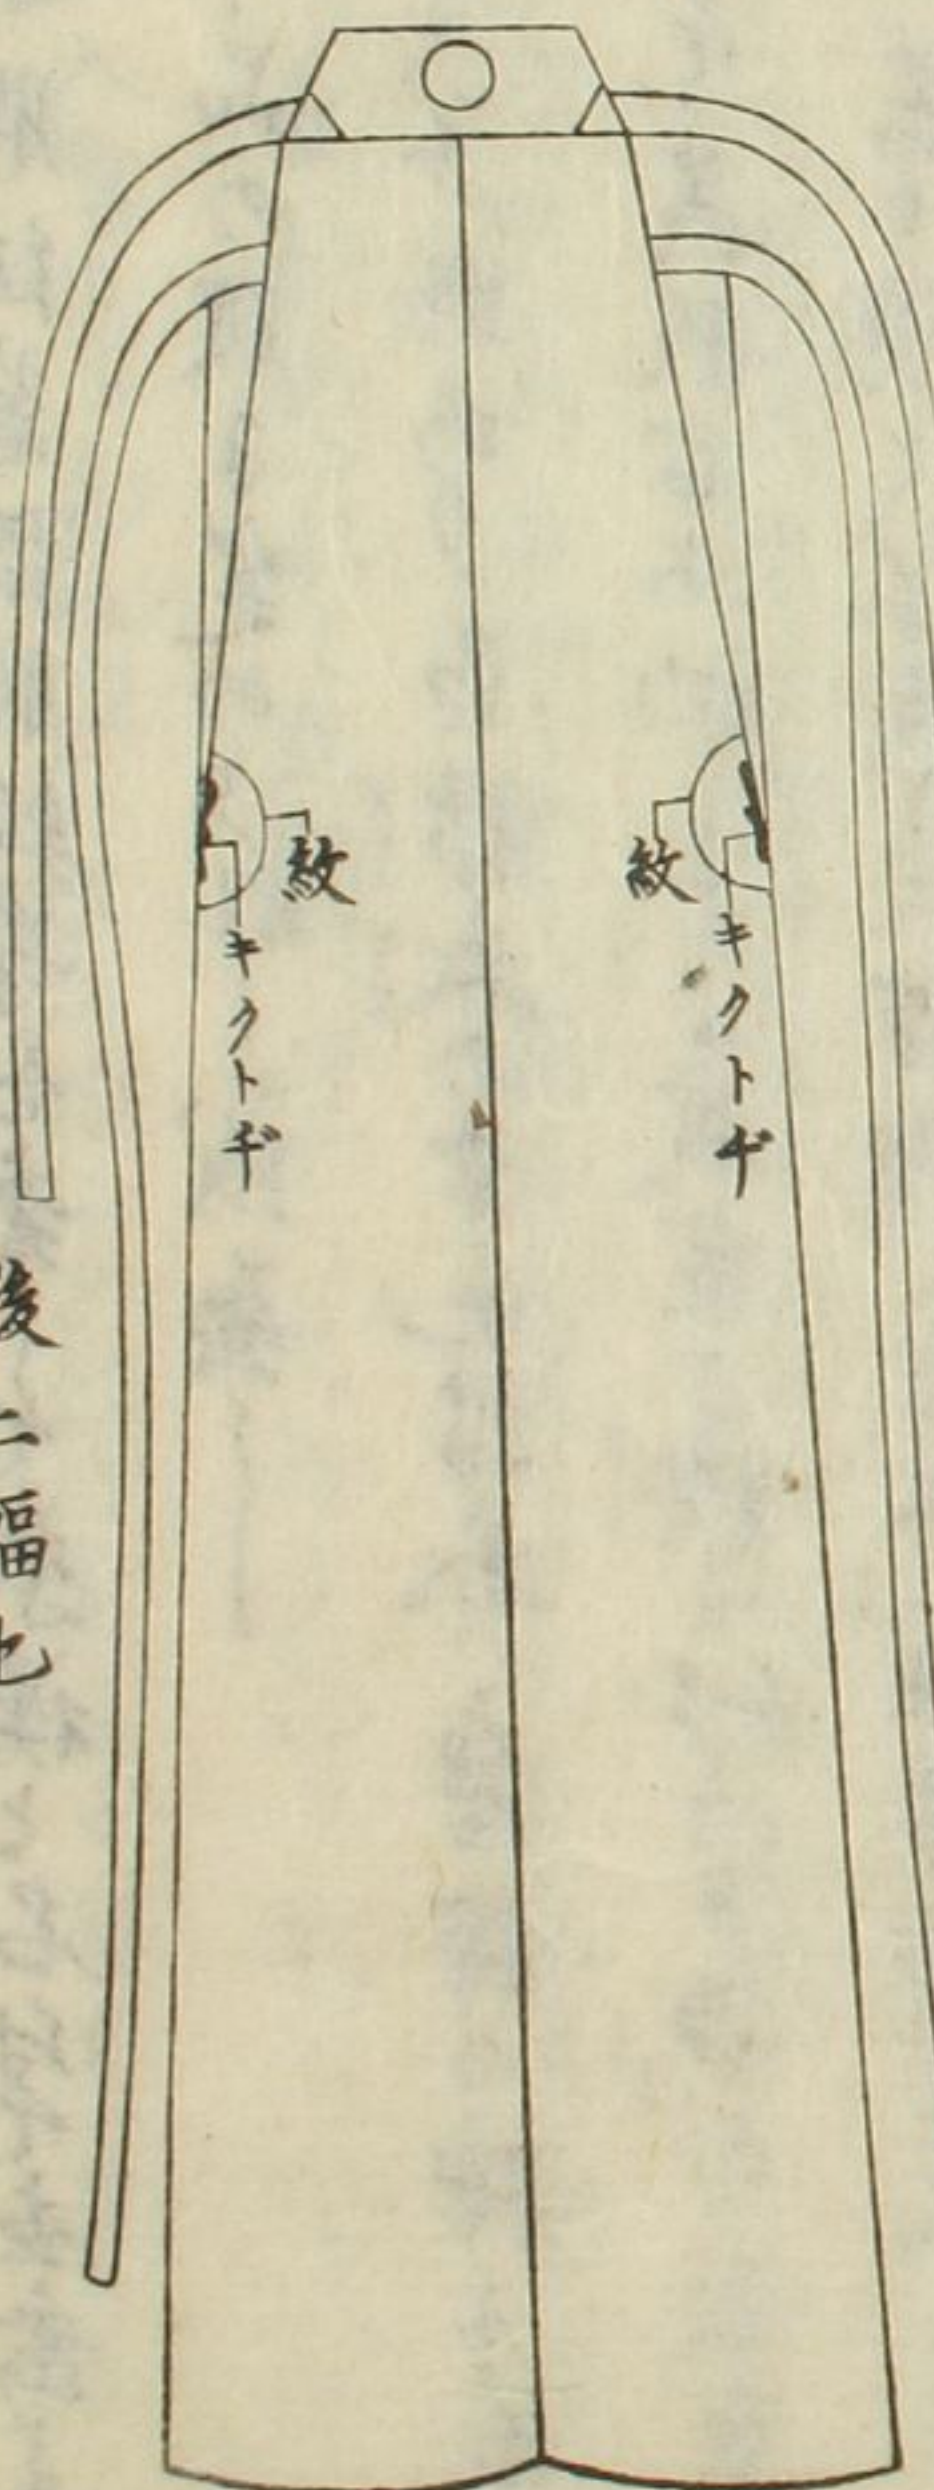 紋
キクトヂ
紋
キクトヂ
後二幅也